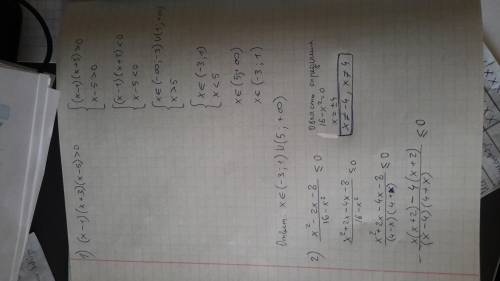 1) (x-1)(x+3)(x-5)>0
{(x-1)(x+3)>0
{x-5>0
{(x-1)(x+3)<0
{x-5<0
{x∈(-∞;-3)∪(1;+∞)
{x>5
{x∈(-3;1)
{x<5
x∈(5;∞)
x∈(-3;1)
Ответ: x∈(-3;1)∪(5;+∞)
2) x²-2x-8/16-x² ≤0
Область определения
16-x²=0
x=±4
x≠-4, x≠4
x²+2x-4x-8/16-x² ≤0
x²+2x-4x-8/(4-x)(4+x) ≤0
-x(x+2)-4(x+2)/(x-4)(4+x) ≤0